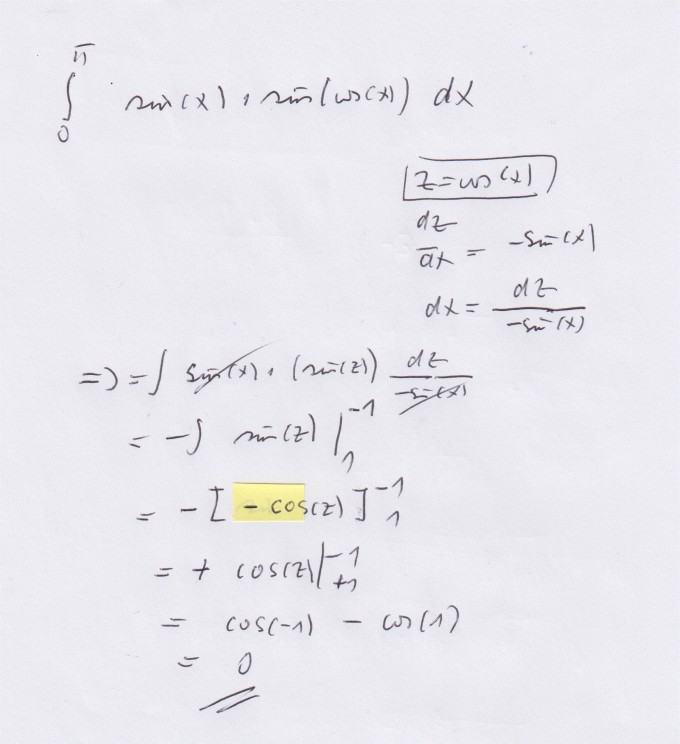 ∫₀^π sin(x) · sin(cos(x)) dx
z = cos(x)
dz/dx = -sin(x)
dx = dz/-sin(x)
=> = ∫ sin(x) · (sin(z)) dz/-sin(x)
= -∫ sin(z) |₁⁻¹
= -[-cos(z)]₁⁻¹
= + cos(z)|₊₁⁻¹
= cos(-1) - cos(1)
= 0